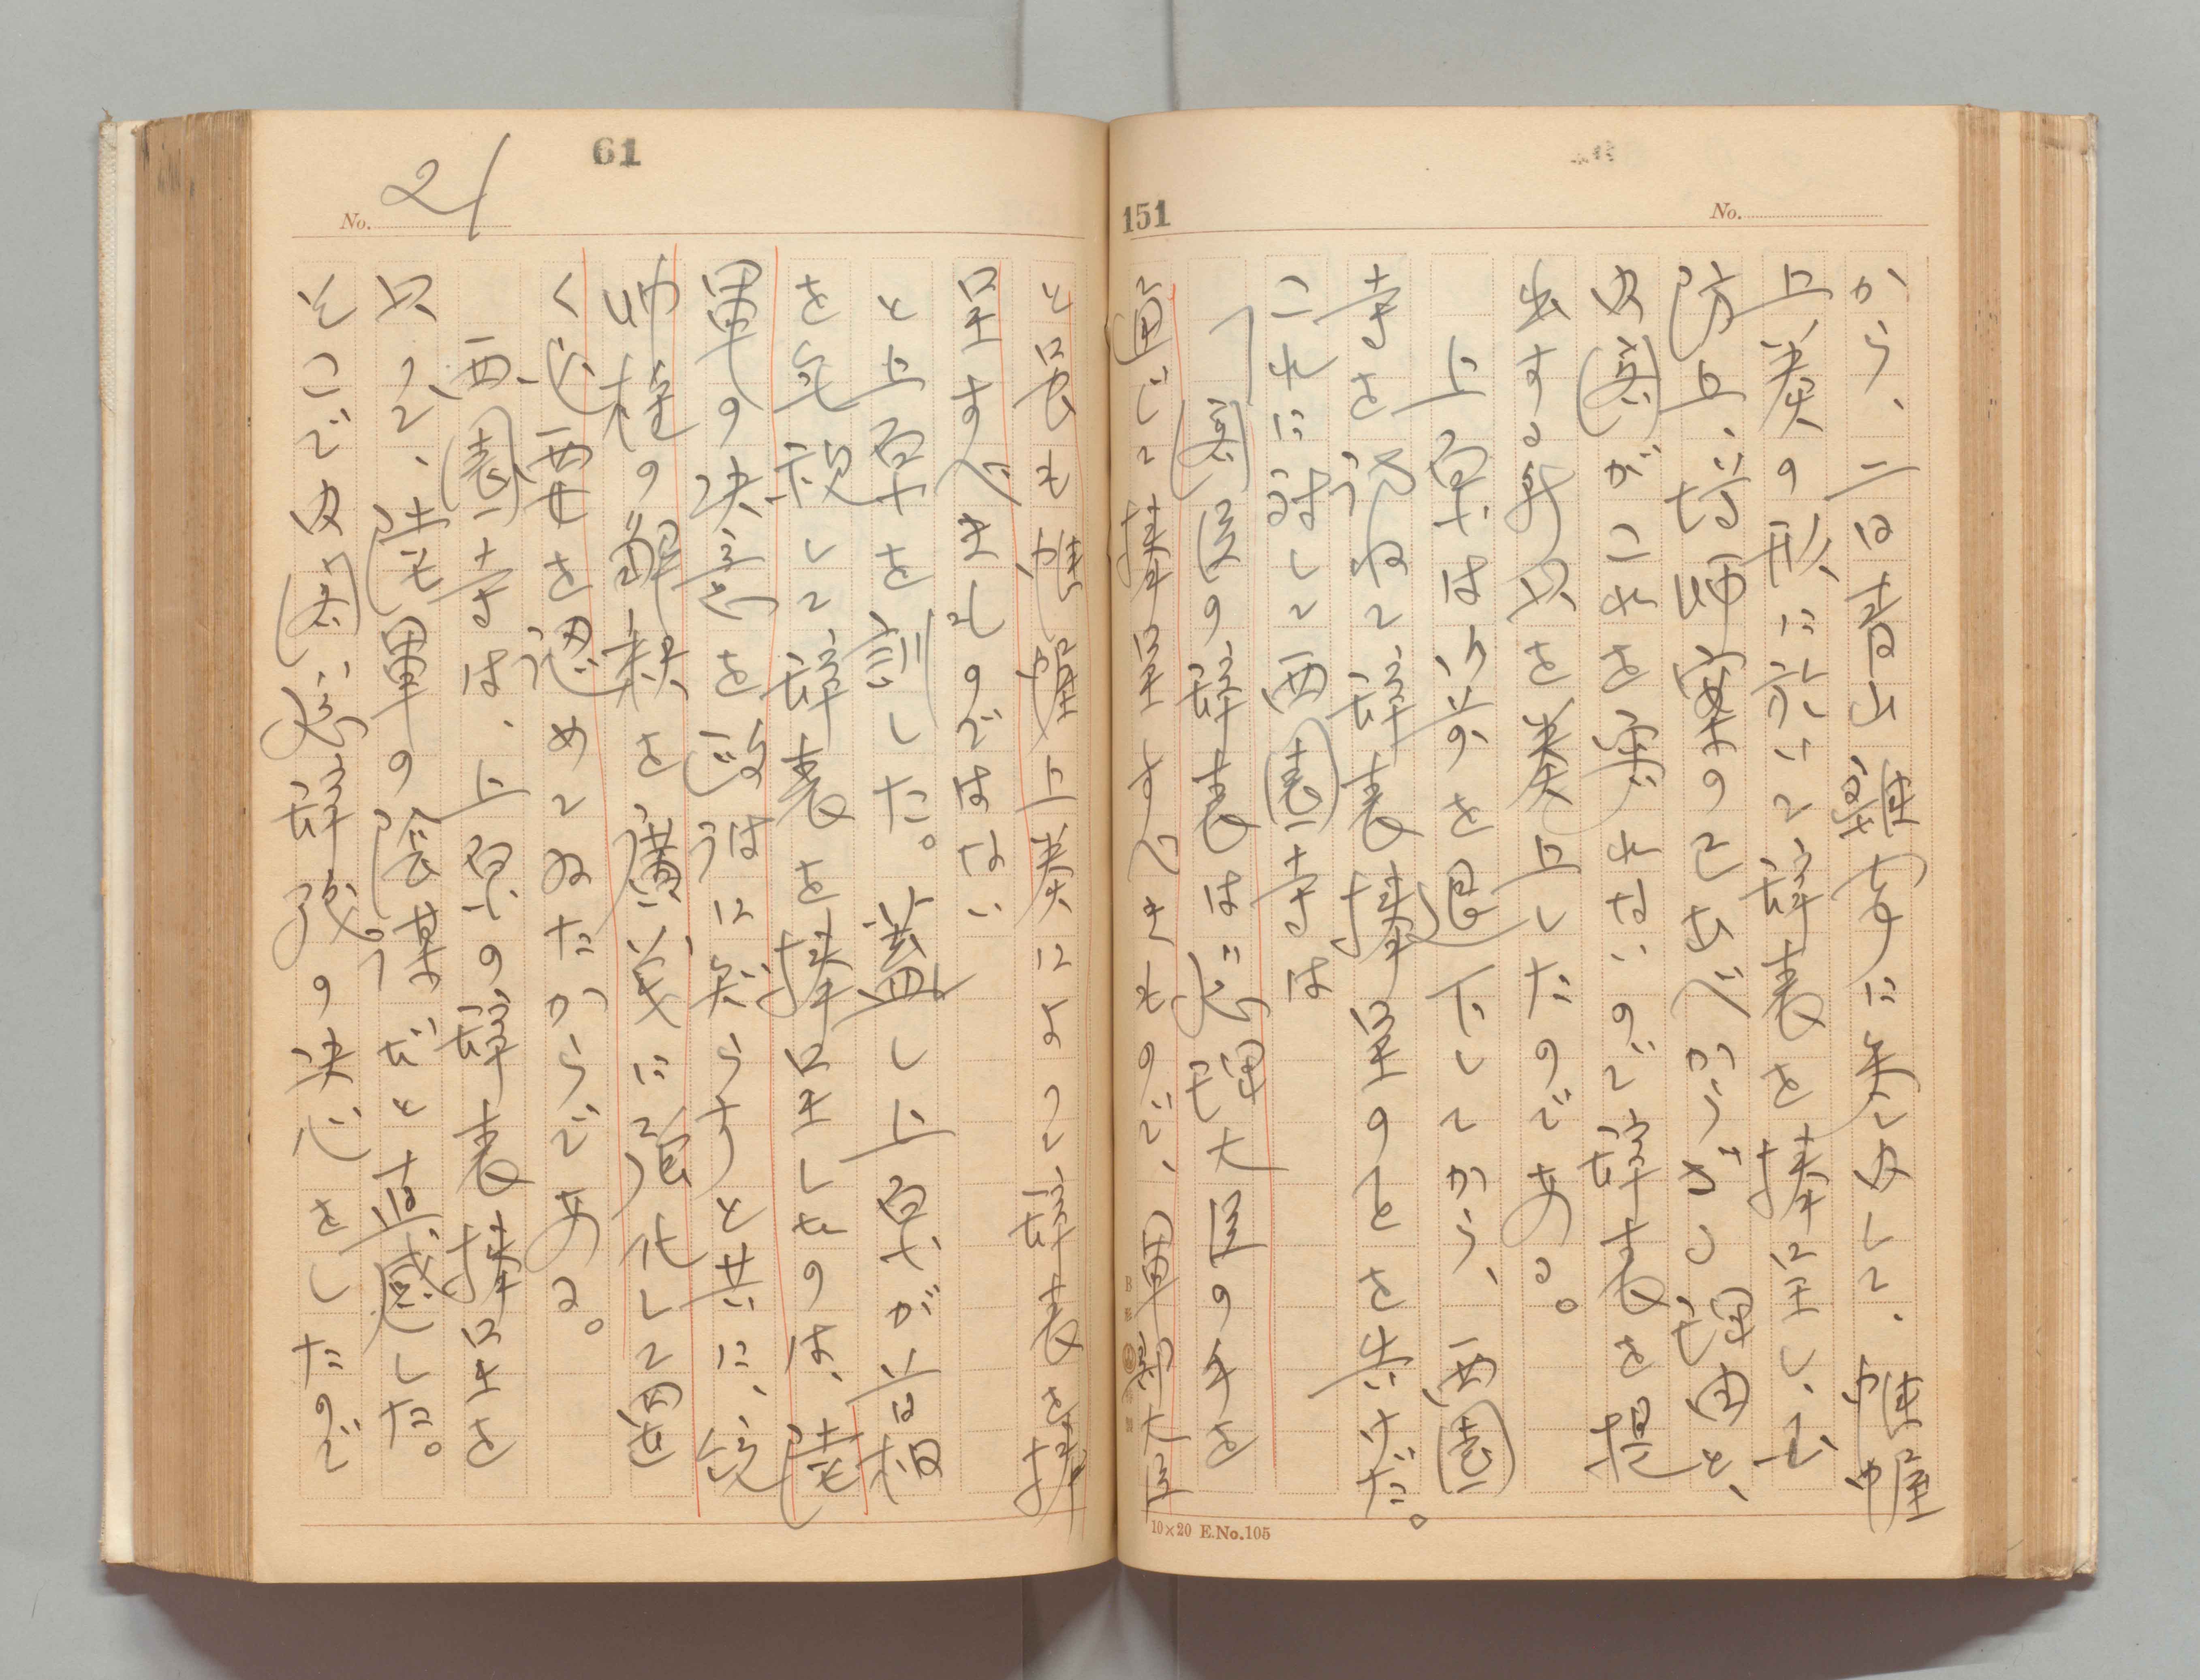 61
No. 21
151
No.
から、二日青山離宮に参内して、帷幄
上奏の形に於いて辞表を捧呈し、玉
防上、増師案の已むべからざる理由と、
内閣がこれを容れないので辞表を提
出する形以を奏上したのである。
上原は御前を退下してから、西園
寺を訪ねて辞表捧呈のことを告げた。
これに対して西園寺は
「閣臣の辞表は必ず総理大臣の手を
通じて捧呈すべきもので、軍部大臣
と雖も帷幄上奏によつて辞表を捧
呈すべきものではない
と上原を訓した。蓋し上原が首相
を無視して辞表を捧呈したのは、陸
軍の決意を政府に知らすと共に、統
帥権の解釈を広義に強化して置
く必要を認めてゐたからである。
西園寺は、上原の辞表捧呈を
以つて、陸軍の陰謀だと直感した。
そこで内閣総辞職の決心をしたので
10×20 E.No.105